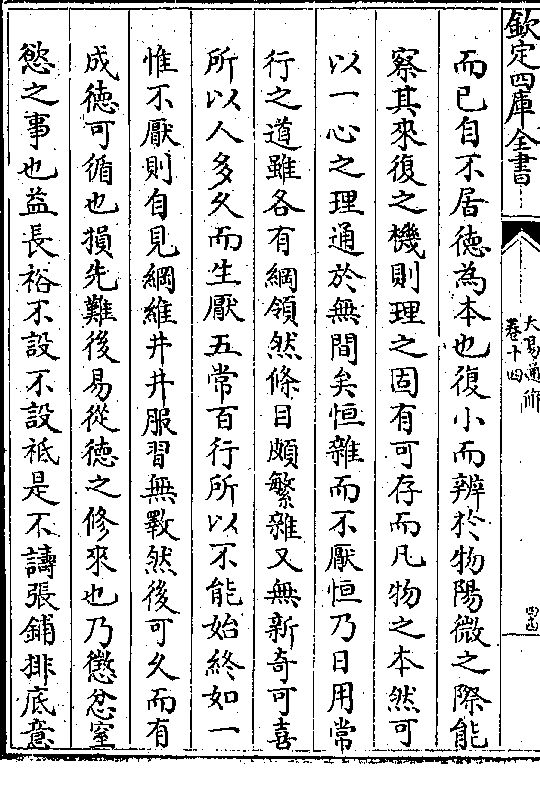 欽定四庫全書
大易通解
卷十四
四四
而已自不居德為本也復小而辨於物陽微之際能
察其來復之機則理之固有可存而凡物之本然可
以一心之理通於無間矣恒雜而不厭恒乃日用常
行之道雖各有綱領然條目頗繁雜又無新奇可喜
所以人多久而生厭五常百行所以不能始終如一
惟不厭則自見綱維井井服習無斁然後可久而有
成德可循也損先難後易從德之修來也乃懲忿窒
慾之事也益長裕不設不設祗是不譸張鋪排底意